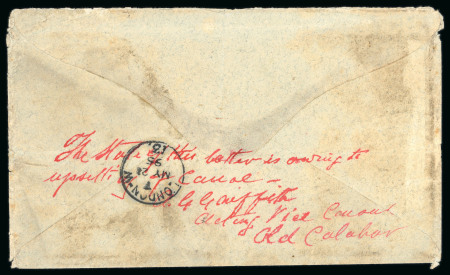 The state of this letter is owing to
upsetting of Canoe -
G Griffith
Acting Vice Consul
Old Calabar
LONDON W
T
MY 21
95